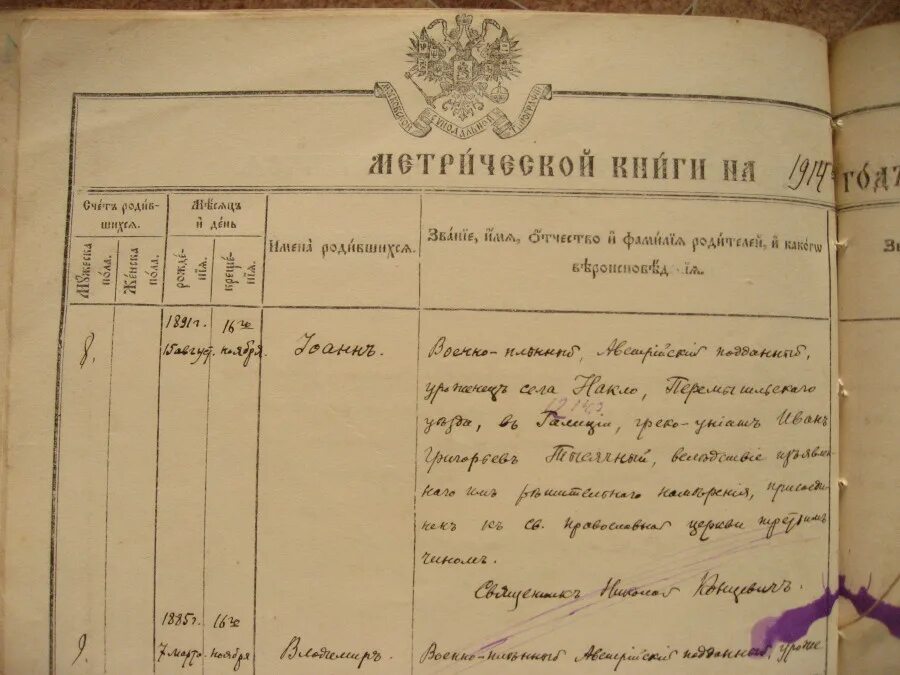 МОСКОВСКОЙ СУНОДАЛЬНОЙ ТИПОГРАФІИ
МЕТРИ́ЧЕСКОЙ КНИ́ГИ НА 1914 ГО́ДЪ
Счетъ роди́вшихся.
Мѣ́сяцъ и́ день
Имена̀ роди́вшихся.
Зва́нїе, и́мя, ѻ́тчество и́ фами́лїя роди́телей, и́ како́гѡ
вѣроисповѣ́данїя.
Му́жеска по́ла.
Же́нска по́ла.
рожде́нїя.
креще́нїя.
8.
1891 г.
15 август.
16 го
ноября.
Іоаннъ.
Военно-плѣнный, Австрійскій подданный,
уроженецъ села Накло, Перемышльскаго
уѣзда, въ Галиціи, греко-уніатъ Иванъ
Григорьевъ Тысячный, вслѣдствіе изъявлен-
наго имъ рѣшительнаго намѣренія, присоеди-
ненъ къ св. православной церкви третьимъ
чиномъ.
Священникъ Николай Концевичъ.
9.
1885 г.
7 марта.
16 го
ноября
Владимиръ.
Военно-плѣнный Австрійскій подданный, уроже